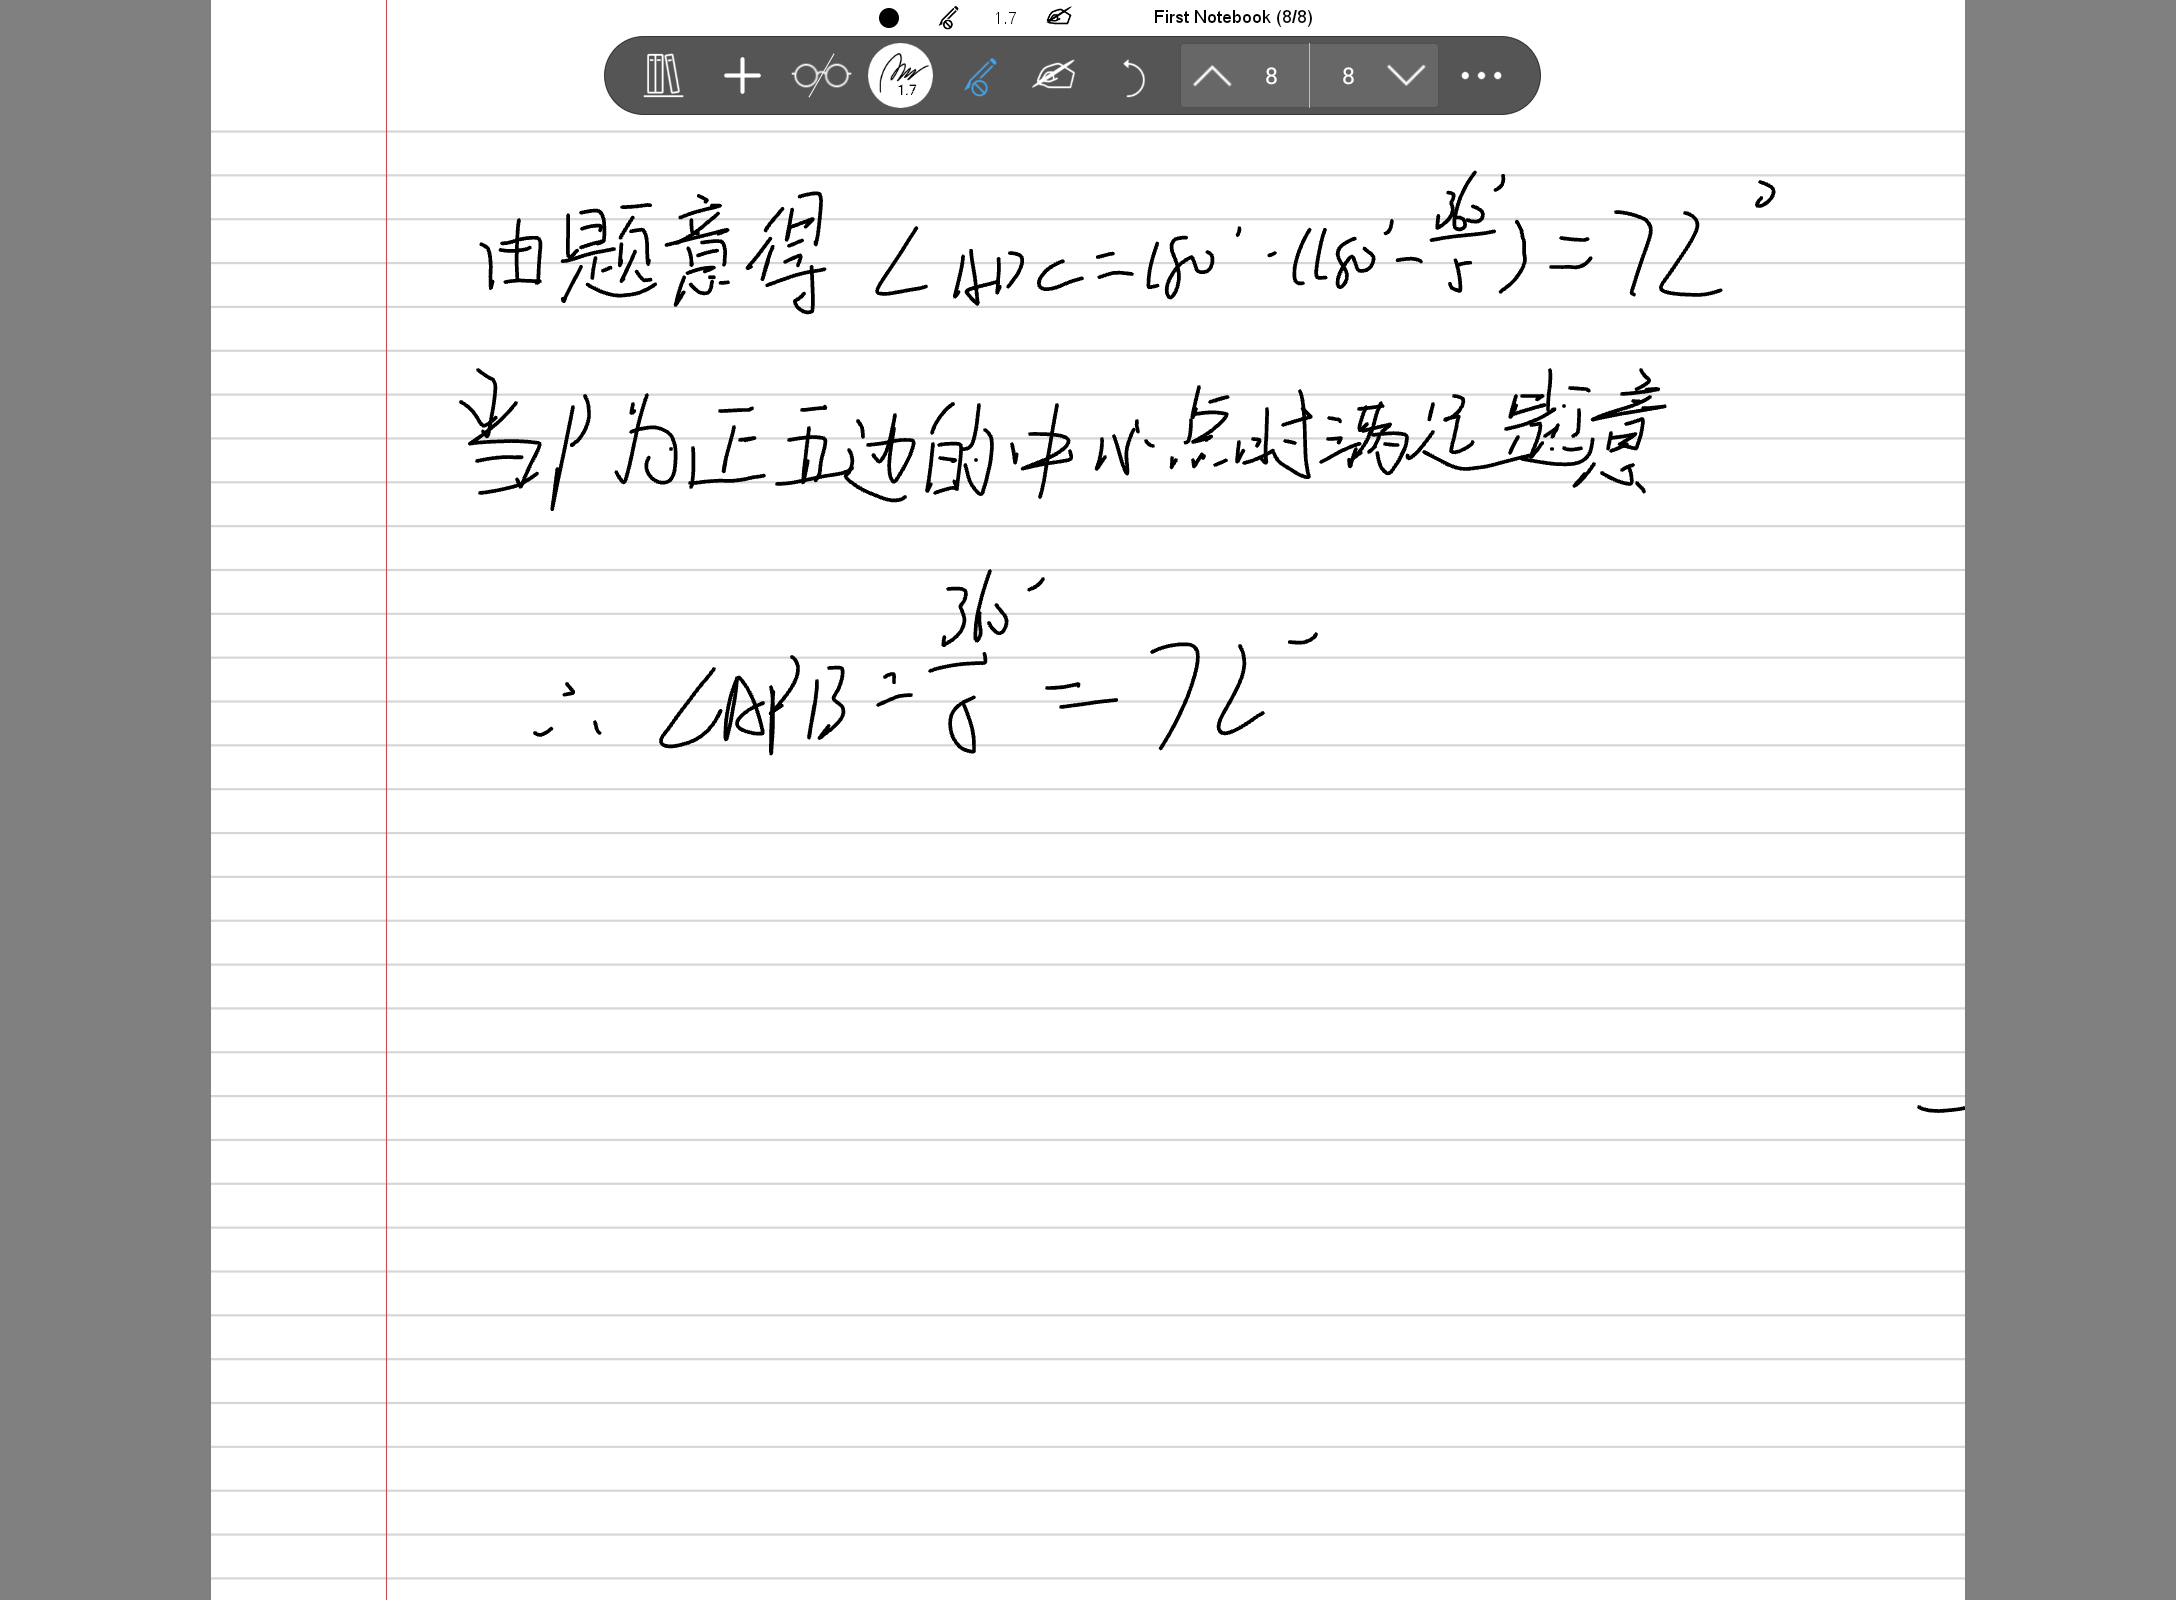 1.7 First Notebook (8/8)
1.7 8 8
由题意得 ∠ADC=180°-(180°-360°/5)=72°
当P为正五边的中心点时满足题意
∴ ∠APB=360°/5=72°